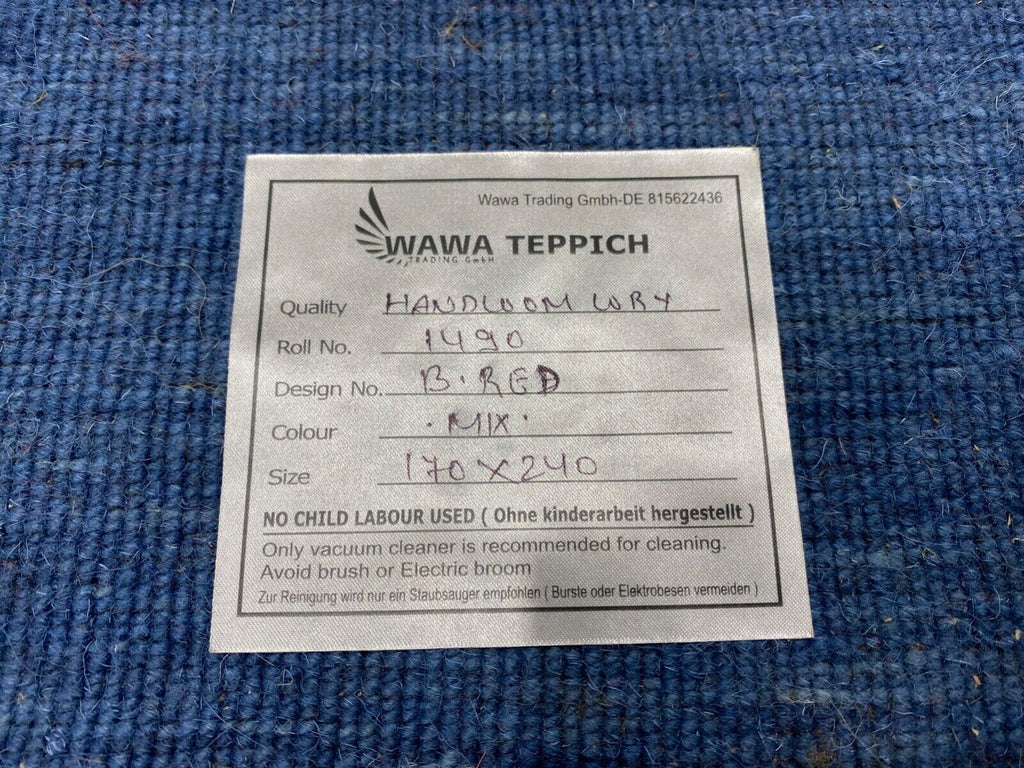 Wawa Trading Gmbh-DE 815622436
WAWA TEPPICH
TRADING GmbH
Quality HANDLOOM LORY
Roll No. 1490
Design No. B.RED
Colour .MIX.
Size 170X240
NO CHILD LABOUR USED ( Ohne kinderarbeit hergestellt )
Only vacuum cleaner is recommended for cleaning.
Avoid brush or Electric broom
Zur Reinigung wird nur ein Staubsauger empfohlen ( Burste oder Elektrobesen vermeiden )